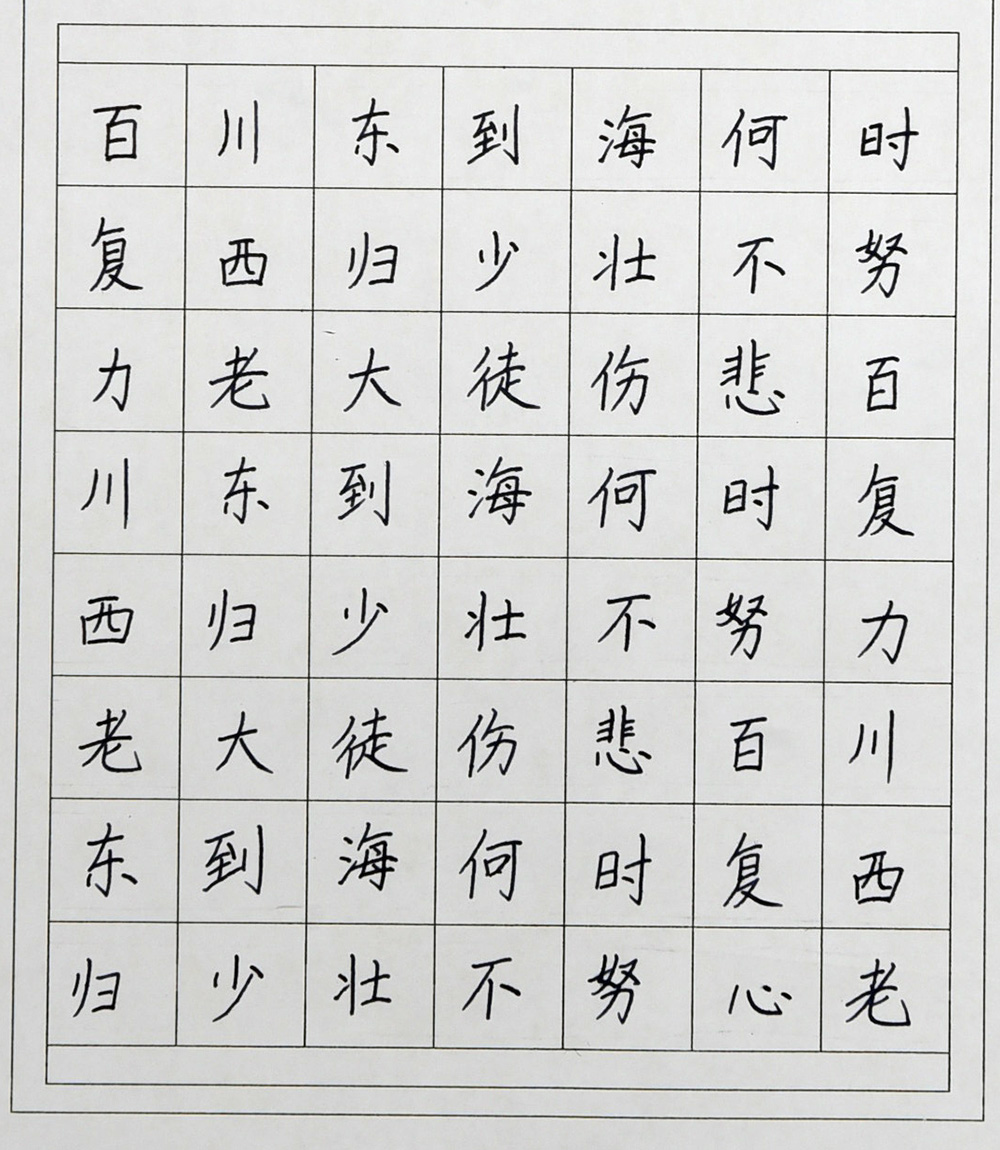 百川东到海何时
复西归少壮不努
力老大徒伤悲百
川东到海何时复
西归少壮不努力
老大徒伤悲百川
东到海何时复西
归少壮不努心老